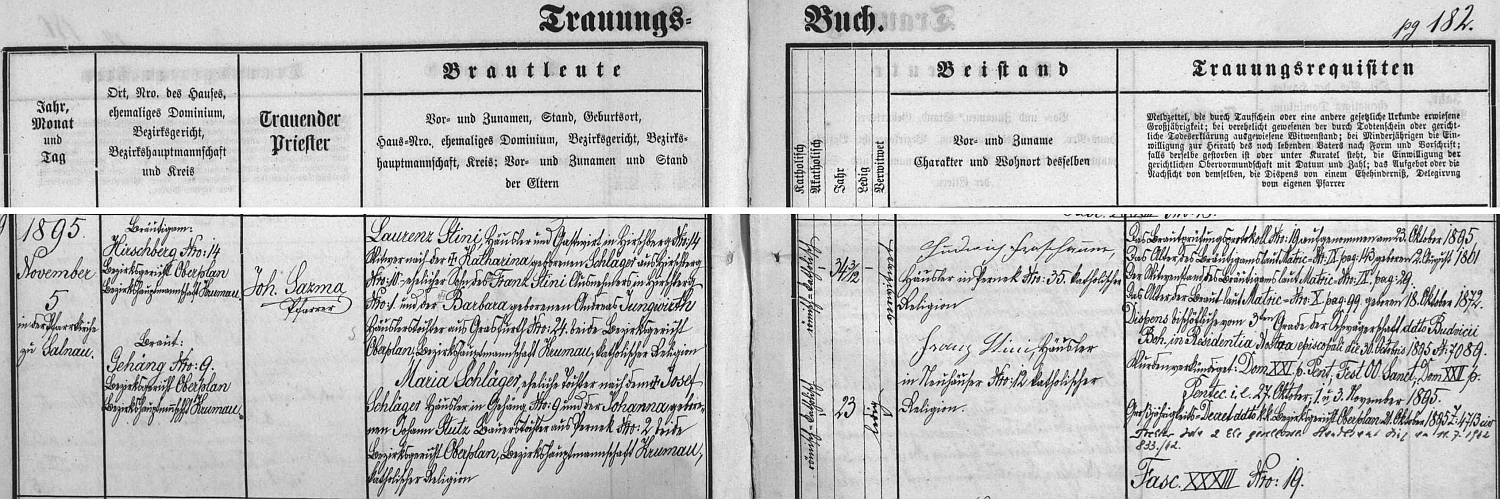 Trauungs-
Buch.
pg 182.
Jahr,
Monat
und
Tag
Ort, Nro. des Hauses,
ehemaliges Dominium,
Bezirksgericht,
Bezirkshauptmannschaft
und Kreis
Trauender
Priester
Brautleute
Vor- und Zunamen, Stand, Geburtsort,
Haus-Nro., ehemaliges Dominium, Bezirksgericht, Bezirks-
hauptmannschaft, Kreis; Vor- und Zunamen und Stand
der Eltern
Katholisch
Akatholisch
Jahr
Ledig
Verwitwet
Beistand
Vor- und Zuname
Charakter und Wohnort desselben
Trauungsrequisiten
Meldzettel, die durch Taufschein oder eine andere gesetzliche Urkunde erwiesene
Großjährigkeit; bei verehelicht gewesenen der durch Todtenschein oder gericht-
liche Todeserklärung ausgewiesene Witwenstand; bei Minderjährigen die Ein-
willigung zur Heirath des noch lebenden Vaters nach Form und Vorschrift;
falls derselbe gestorben ist oder unter Kuratel steht, die Einwilligung der
gerichtlichen Obervormundschaft mit Datum und Zahl; das Aufgebot oder die
Nachsicht von demselben, die Dispens von einem Ehehinderniß, Delegirung
vom eigenen Pfarrer
1895.
November
5
in der Pfarrkirche
zu Salnau.
Bräutigam:
Hirschberg Nro: 14
Bezirksgericht Oberplan
Bezirkshauptmannschaft Krumau.
Braut:
Gehäng Nro: 9.
Bezirksgericht Oberplan
Bezirkshauptmschft Krumau.
Joh. Sazma
Pfarrer
Laurenz Stini, Häusler und Gastwirt in Hirschberg Nro: 14
Witwer nach der † Katharina geborenen Schläger aus Hirschberg
Nro: 11 ehelicher Sohn des Franz Stini Ausnehmers in Hirschberg
Nro: 1 und der Barbara geborenen Andreas Jungwirth
Häuslerstochter aus Grasfurth Nro: 24. beide Bezirksgericht
Oberplan, Bezirkshauptmannschaft Krumau, katholischer Religion
Maria Schläger, eheliche Tochter nach dem † Josef
Schläger Häusler in Gehäng Nro: 9 und der Johanna, gebore-
nen Johann Stutz Bauerstochter aus Pernek Nro: 2, beide
Bezirksgericht Oberplan, Bezirkshauptmannschaft Krumau,
katholischer Religion
römisch-katholisch
34 3/12
verwitwet
römisch katholisch
23
ledig
Häusler in Pernek Nro: 35. katholischer
Religion
Franz Stini, Häusler
in Neuhäuser Nro: 12 katholischer
Religion.
Das Brautprüfungsprotokoll Nro: 19 aufgenommen am 23. Oktober 1895.
Das Alter des Bräutigams laut Matric-Nro: IX pag: 43 geboren 2. August 1861
Der Witwenstand des Bräutigams laut Matric-Nro: IX pag: 29.
Das Alter der Braut laut Matric-Nro: X. pag: 99. geboren 18. Oktober 1872.
Dispens bischöfliche vom 3ten Grade der Schwägerschaft dato Budvicii
Boh. in Residentia Nostra episcopali die 30. Octobris 1895 № 7089.
Kirchenverkündiget: Dom XXI. p. Pent, Fest OO Sanct, Dom XXII p.
Pentec i. e. 27. Oktober, 1. u 3. November 1895.
Großjährigkeits-Decret dato k.k. Bezirksgericht Oberplan 21. Oktober 1895 Z. 4713 civ
Fasc. XXXIII Nro: 19.